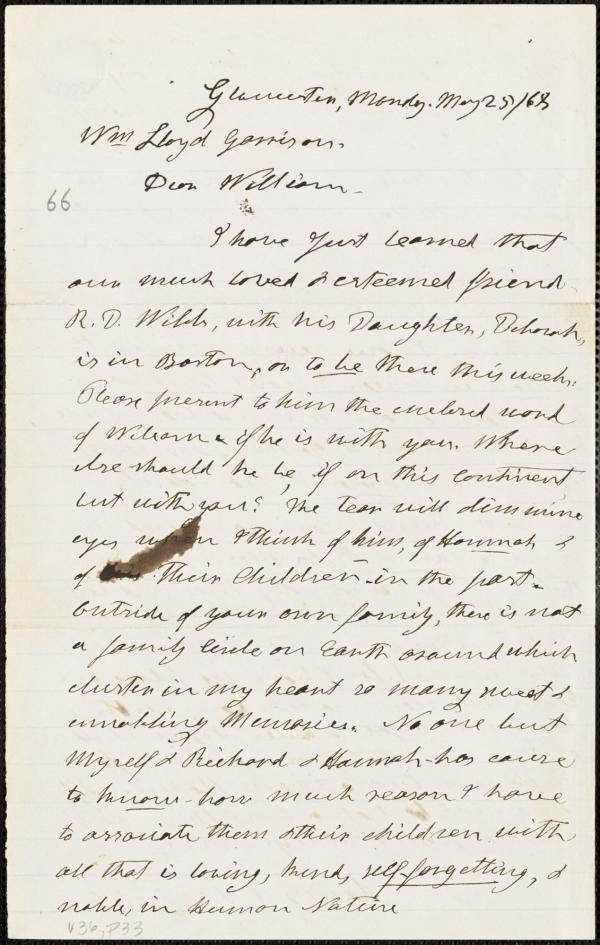 Gloucester, Monday. May 25/68
Wm Lloyd Garrison.
Dear William -
66
I have Just learned that
our much loved & esteemed friend
R. D. Webb, with his Daughter, Deborah,
is in Boston, or to be there this week.
Please present to him the enclosed word
of Welcome - if he is with you. Where
else should he be, if on this continent
but with you? The tear will dim mine
eyes when I think of him, of Hannah &
of their Children - in the past.
Outside of your own family, there is not
a family Circle on Earth around which
cluster in my heart so many sweet &
ennobling Memories. No one but
Myself & Richard & Hannah - has cause
to know - how much reason I have
to associate them & their children with
all that is loving, kind, self-forgetting, &
noble, in Human Nature
v36, p33